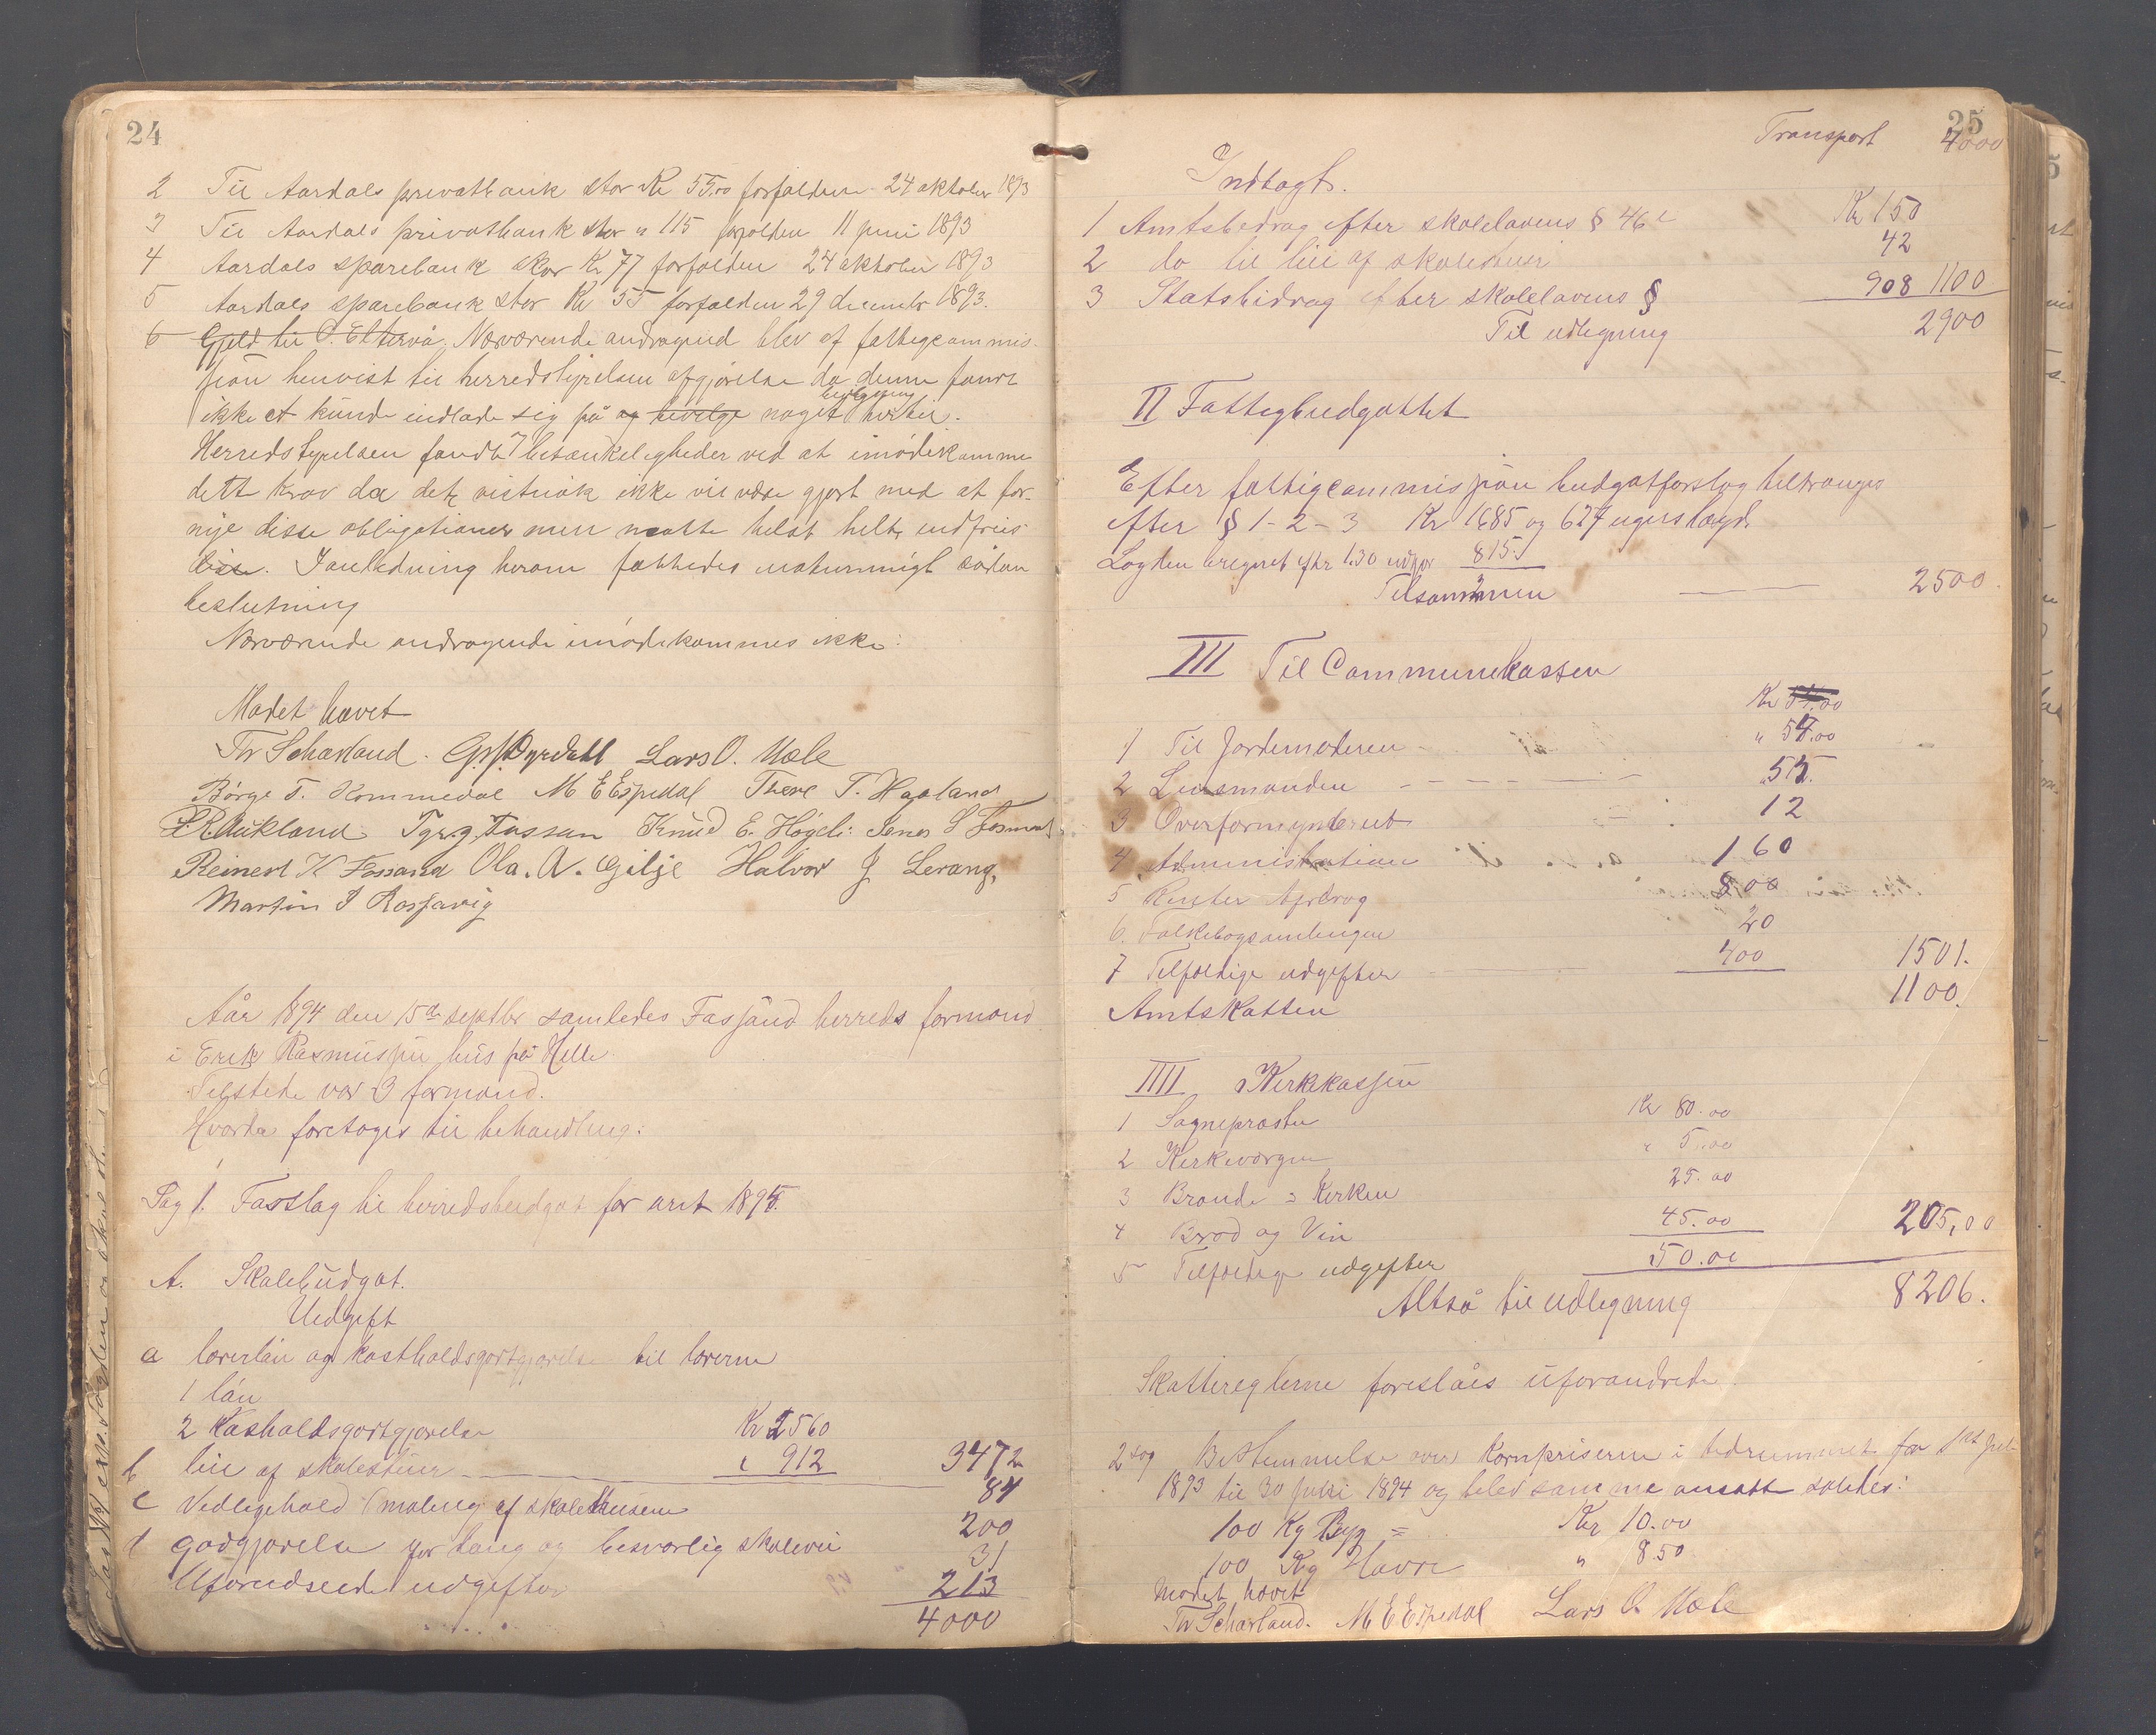 24
2 Til Aardals privatbank stor Kr 55.00 forfalden 24 oktober 1893
3 Til Aardals privatbank stor " 115 forfalden 11 juni 1893
4 Aardals sparebank stor Kr 77 forfalden 24 oktober 1893
5 Aardals sparebank stor Kr 55 forfalden 29 decembr 1893.
6 Gjeld til Nærværende andragend blev af fattigcommis-
sion henvist til herredstyrelsen afgjørelse da denne fandt
ikke at kunde indlade sig på og bevilge noget hertil.
Herredstyrelsen fandt betænkeligheder ved at imødekomme
dette krav da det vistnok ikke vil være gjort med at for-
nye disse obligationer men måtte helst helt indfries
disse. I anledning herom fattedes enstemmigt sådan
beslutning
Nærværende andragende imødekommes ikke:
Mødet hævet
Th Scharland. Lars O. Mæle
Børge T. Kommedal M E Espedal Thore T. Haaland
R Aukland Tgr. g. Fossan Knud E. Høgeli Jonas S Fosmark
Reinert K Fossand Ola. A. Gilje Halvor J Lerang,
Martin J Rossavig
Aår 1894 den 15de septbr samledes Fossand herreds formænd
i Erik Rasmussen hus på Helle
Tilstede var 3 formænd.
Hvorda foretoges til behandling:
Sag 1. Forslag til herredsbudget for aret 1895.
A. Skolebudget.
Udgift
a lærerløn og kostholdsgodtgjørelse til lærerne
1 løn
2 Kostholdsgodtgjørelse Kr 2560
b leie af skolestuer " 912 3472
c Vedligehold (maling af skolehusene 84
d godgjørelse for lang og besværlig skolevei 200
Uforudseede udgifter 31
213
4000
25
Transport 4000
Indtægt.
1 Amtsbedrag efter skolelovens § 46 Kr 150
2 do til leie af skolestuer 42
3 Statsbidrag efter skolelovens § 908 1100
Til udlegning 2900
II Fattigbudgettet
Efter fattigcommissjon budgetforslag tiltrænges
efter § 1-2-3 Kr 1685 og 627 ugers lægd
Lægden beregnet efter 1.30 udgjør 815
Tilsammen 2500
III Til Communekassen
Kr
1 Til Jordemoderen " 54.00
2 Lensmanden 55
3 Overformynderiet 12
4 Administration 160
5 Renter Afdrag 800
6. Folkebogsamlingen 20
7 Tilfældige udgifter 400 1501.
Amtskatten 1100.
IIII Kirkekassen
1 Sognepræsten Kr 80.00
2 Kirkeværgen " 5.00
3 Brænde = Kirken 25.00
4 Brød og Vin 45.00
5 Tilfældige udgifter 50.00 205,00
Altså til udlegning 8206.
Skattereglerne foreslåes uforandrede.
2 sag Bestemmelse over kornpriserne i tidrummet fra 1st juli
1893 til 30 juni 1894 og blev samme ansatt således:
100 Kg Byg = Kr 10.00
100 Kg Havre " 8.50
Mødet hævet
Th Scharland. M E Espedal Lars O. Mæle